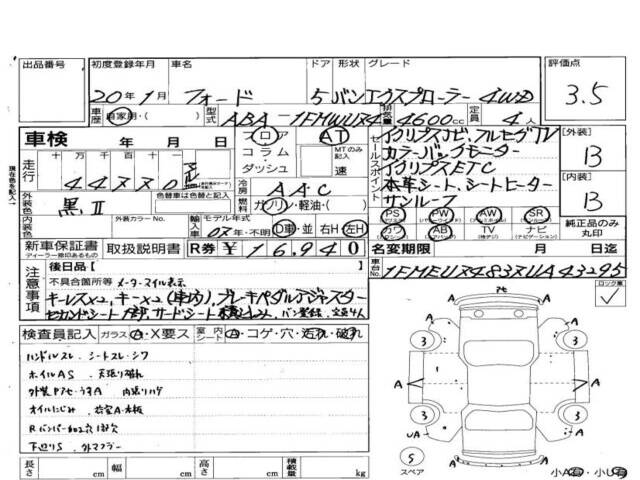 出品番号 初度登録年月 車名 ドア 形状 グレード 評価点
20年1月 フォード 5 バン エクスプローラー 4WD 3.5
車歴 自家用・( ) 型式 ABA-1FMWU74 排気量 4600cc 定員 4人
車検 年 月 日 フロア AT
コラム・ダッシュ MTのみ記入 速
走行 十万 万 千 百 十 一
44770
セールスポイント
イクリプスナビ、フルセグTV
カラーバックモニター
イクリプスETC
本革シート、シートヒーター
サンルーフ
[外装] B
[内装] B
外装色 黒Ⅱ 色替車は色替と記入
外装カラーNo. 冷房 AAC
燃料 ガソリン・軽油・( )
輸入車 モデル年式 07年・不明 D車・並 右H・左H
PS PW AW SR
カワ AB TV ナビ
純正品のみ丸印
新車保証書 取扱説明書 R券 ¥16,940
ディーラー捺印あるもの
名変期限 月 日迄
車台No. 1FMEU74837UA43295
注意事項
後日品[ ]
不具合箇所等 メーターマイル表示
キーレスx2、キーx2(車内)、ブレーキペダルアジャスター
検査員記入 ガラス A・X要ス 室内 シート A・コゲ・穴・汚れ・破れ
ハンドルスレ シートスレ・シワ
ホイルAS 天張り破れ
オイルにじみ
下廻りS 外マフラー
ロック車
A A A A A A A
UA
3 3 3 3
5
スペア
小A有・小U有
長さ cm 幅 cm 高さ cm 積載量 kg
現在色を記入